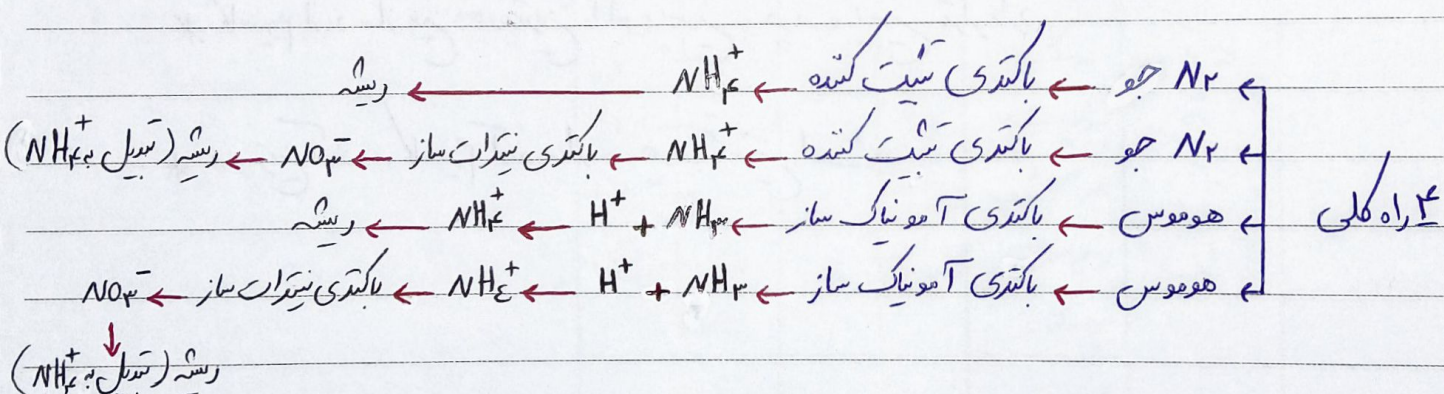 N۲ جو ← باکتری تثبیت کننده ← NH۴+ ← ریشه
N۲ جو ← باکتری تثبیت کننده ← NH۴+ ← باکتری نیترات ساز ← NO۳- ← ریشه (تبدیل به NH۴+)
۴ راه کلی
هوموس ← باکتری آمونیاک ساز ← NH۳ + H+ ← NH۴+ ← ریشه
هوموس ← باکتری آمونیاک ساز ← NH۳ + H+ ← NH٤+ ← باکتری نیترات ساز ← NO۳-
↓
ریشه (تبدیل به NH۴+